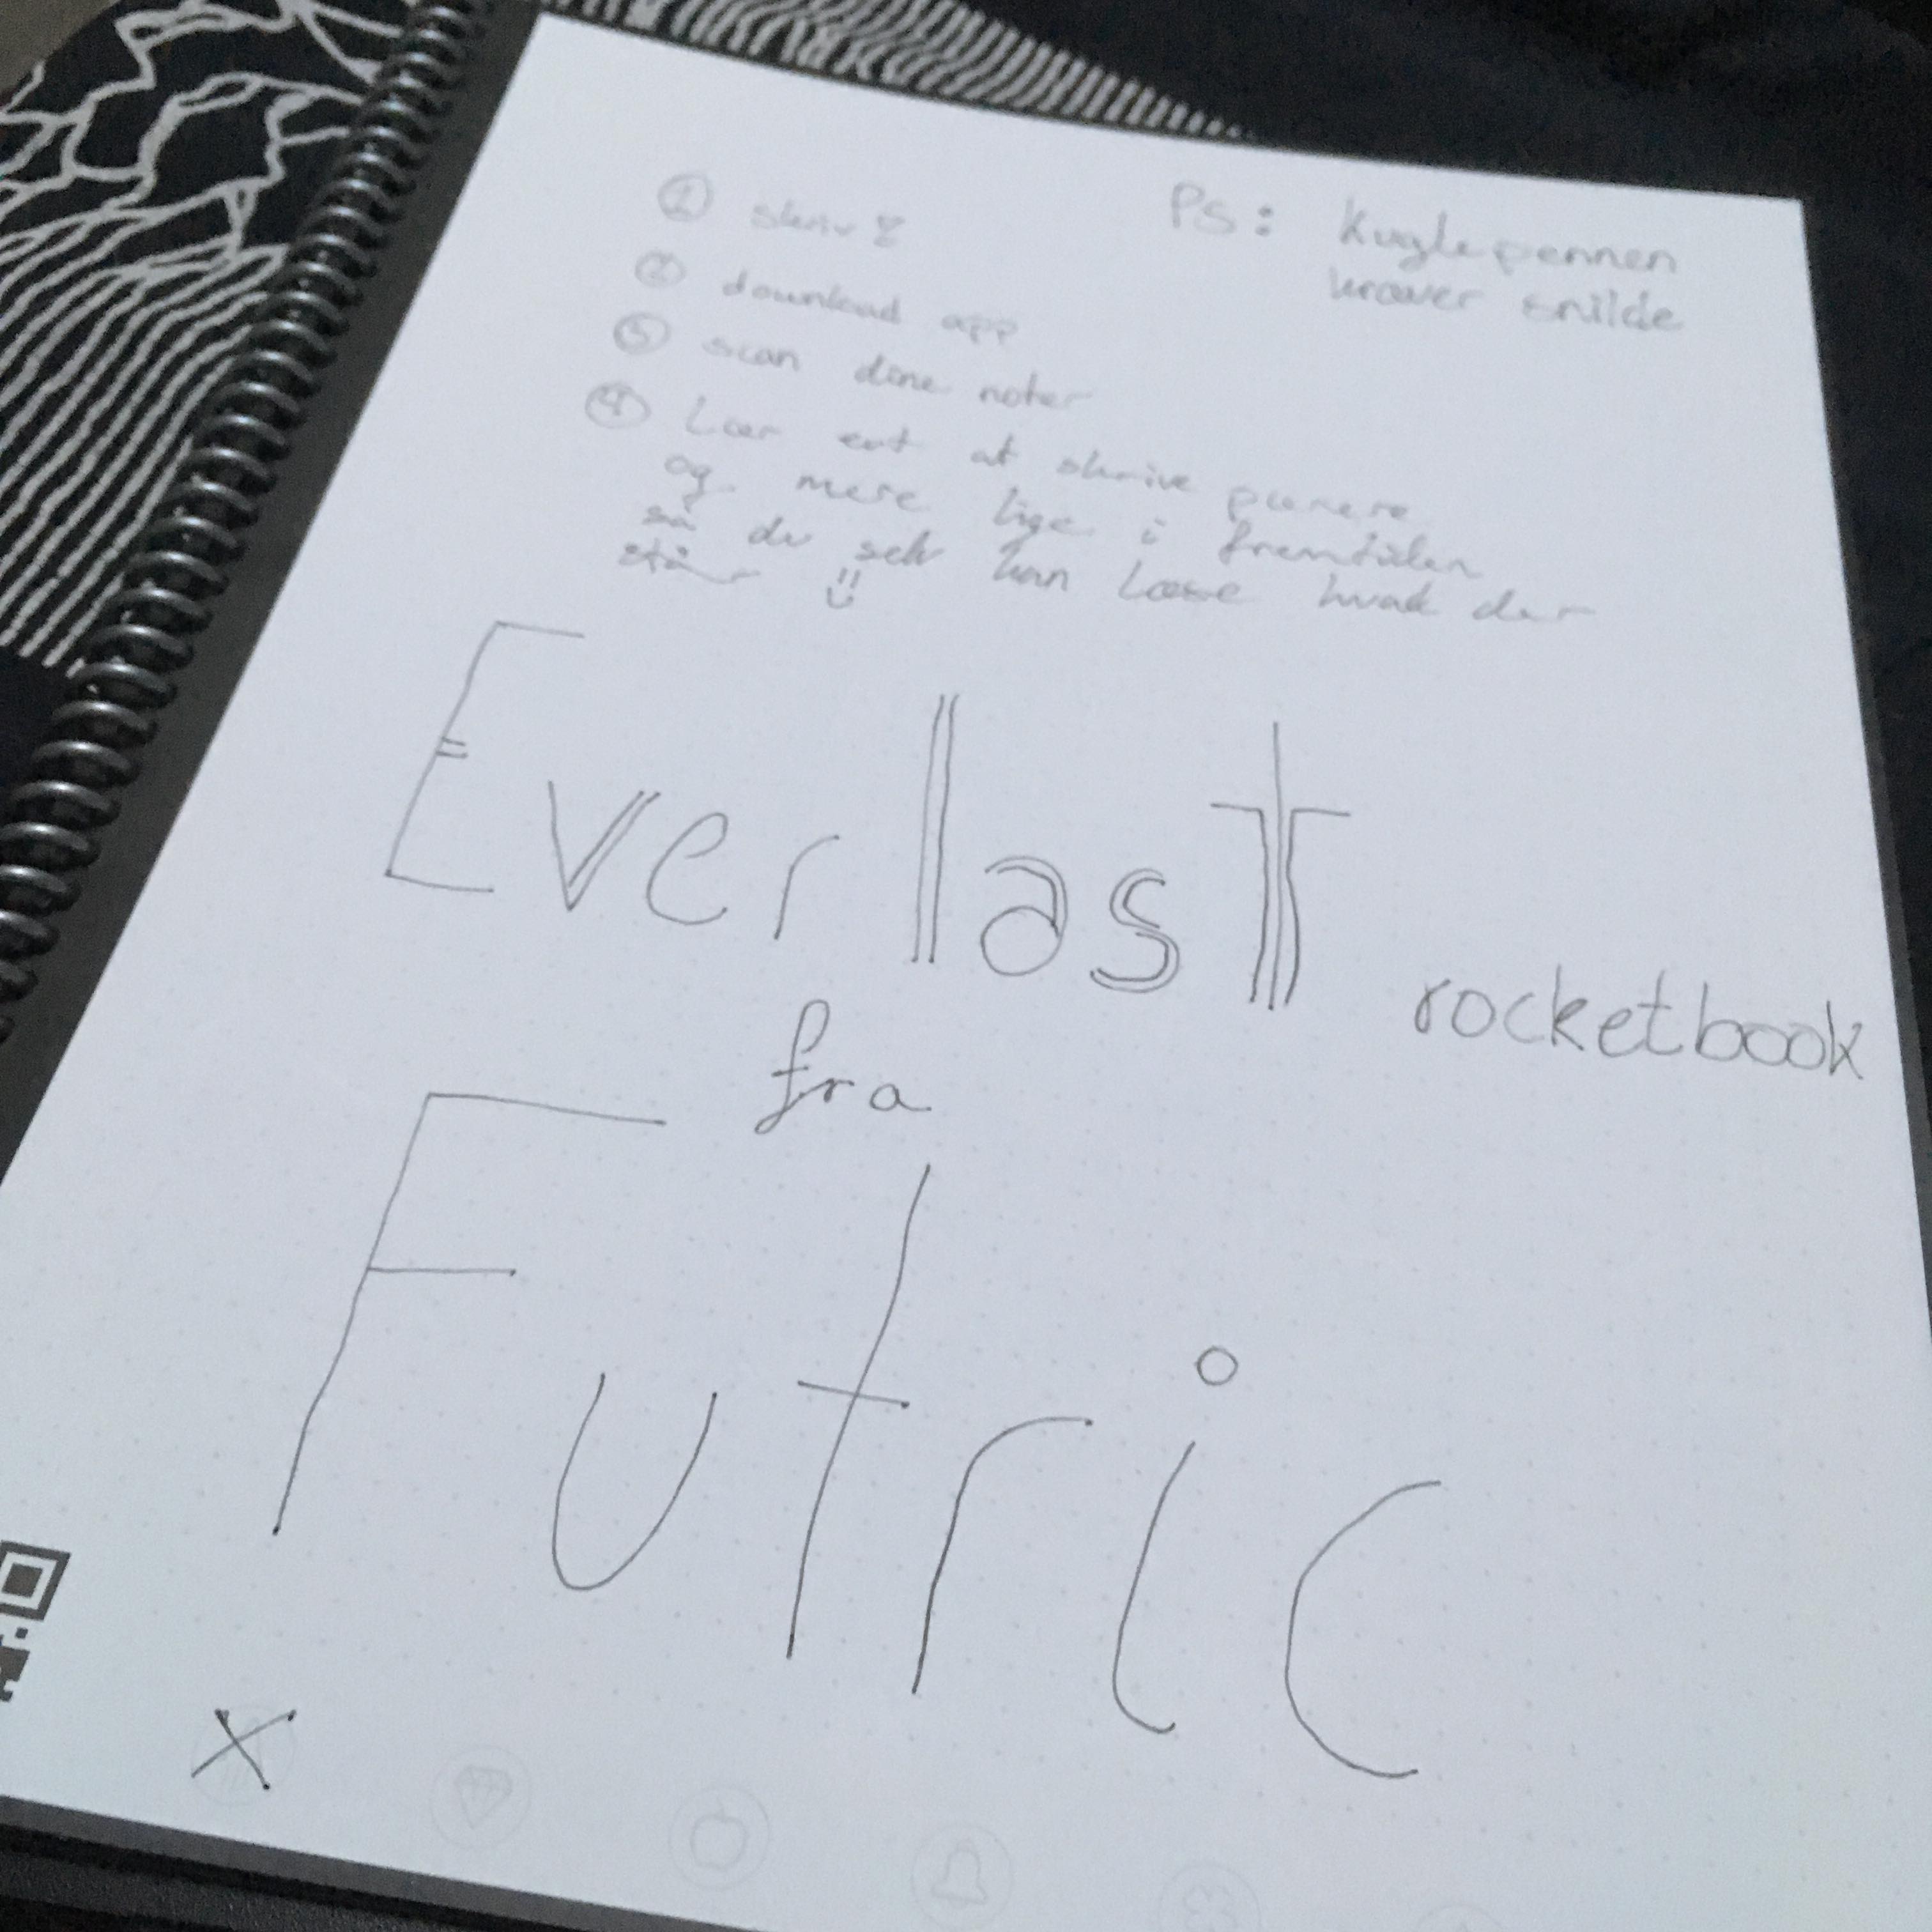 ① skriv
② download app
③ scan dine noter
④ Lær evt at skrive pænere
og mere lige i fremtiden
så du selv kan læse hvad der
står
PS: Kuglepennen
kræver snilde
Everlast rocketbook
fra
Futric
X